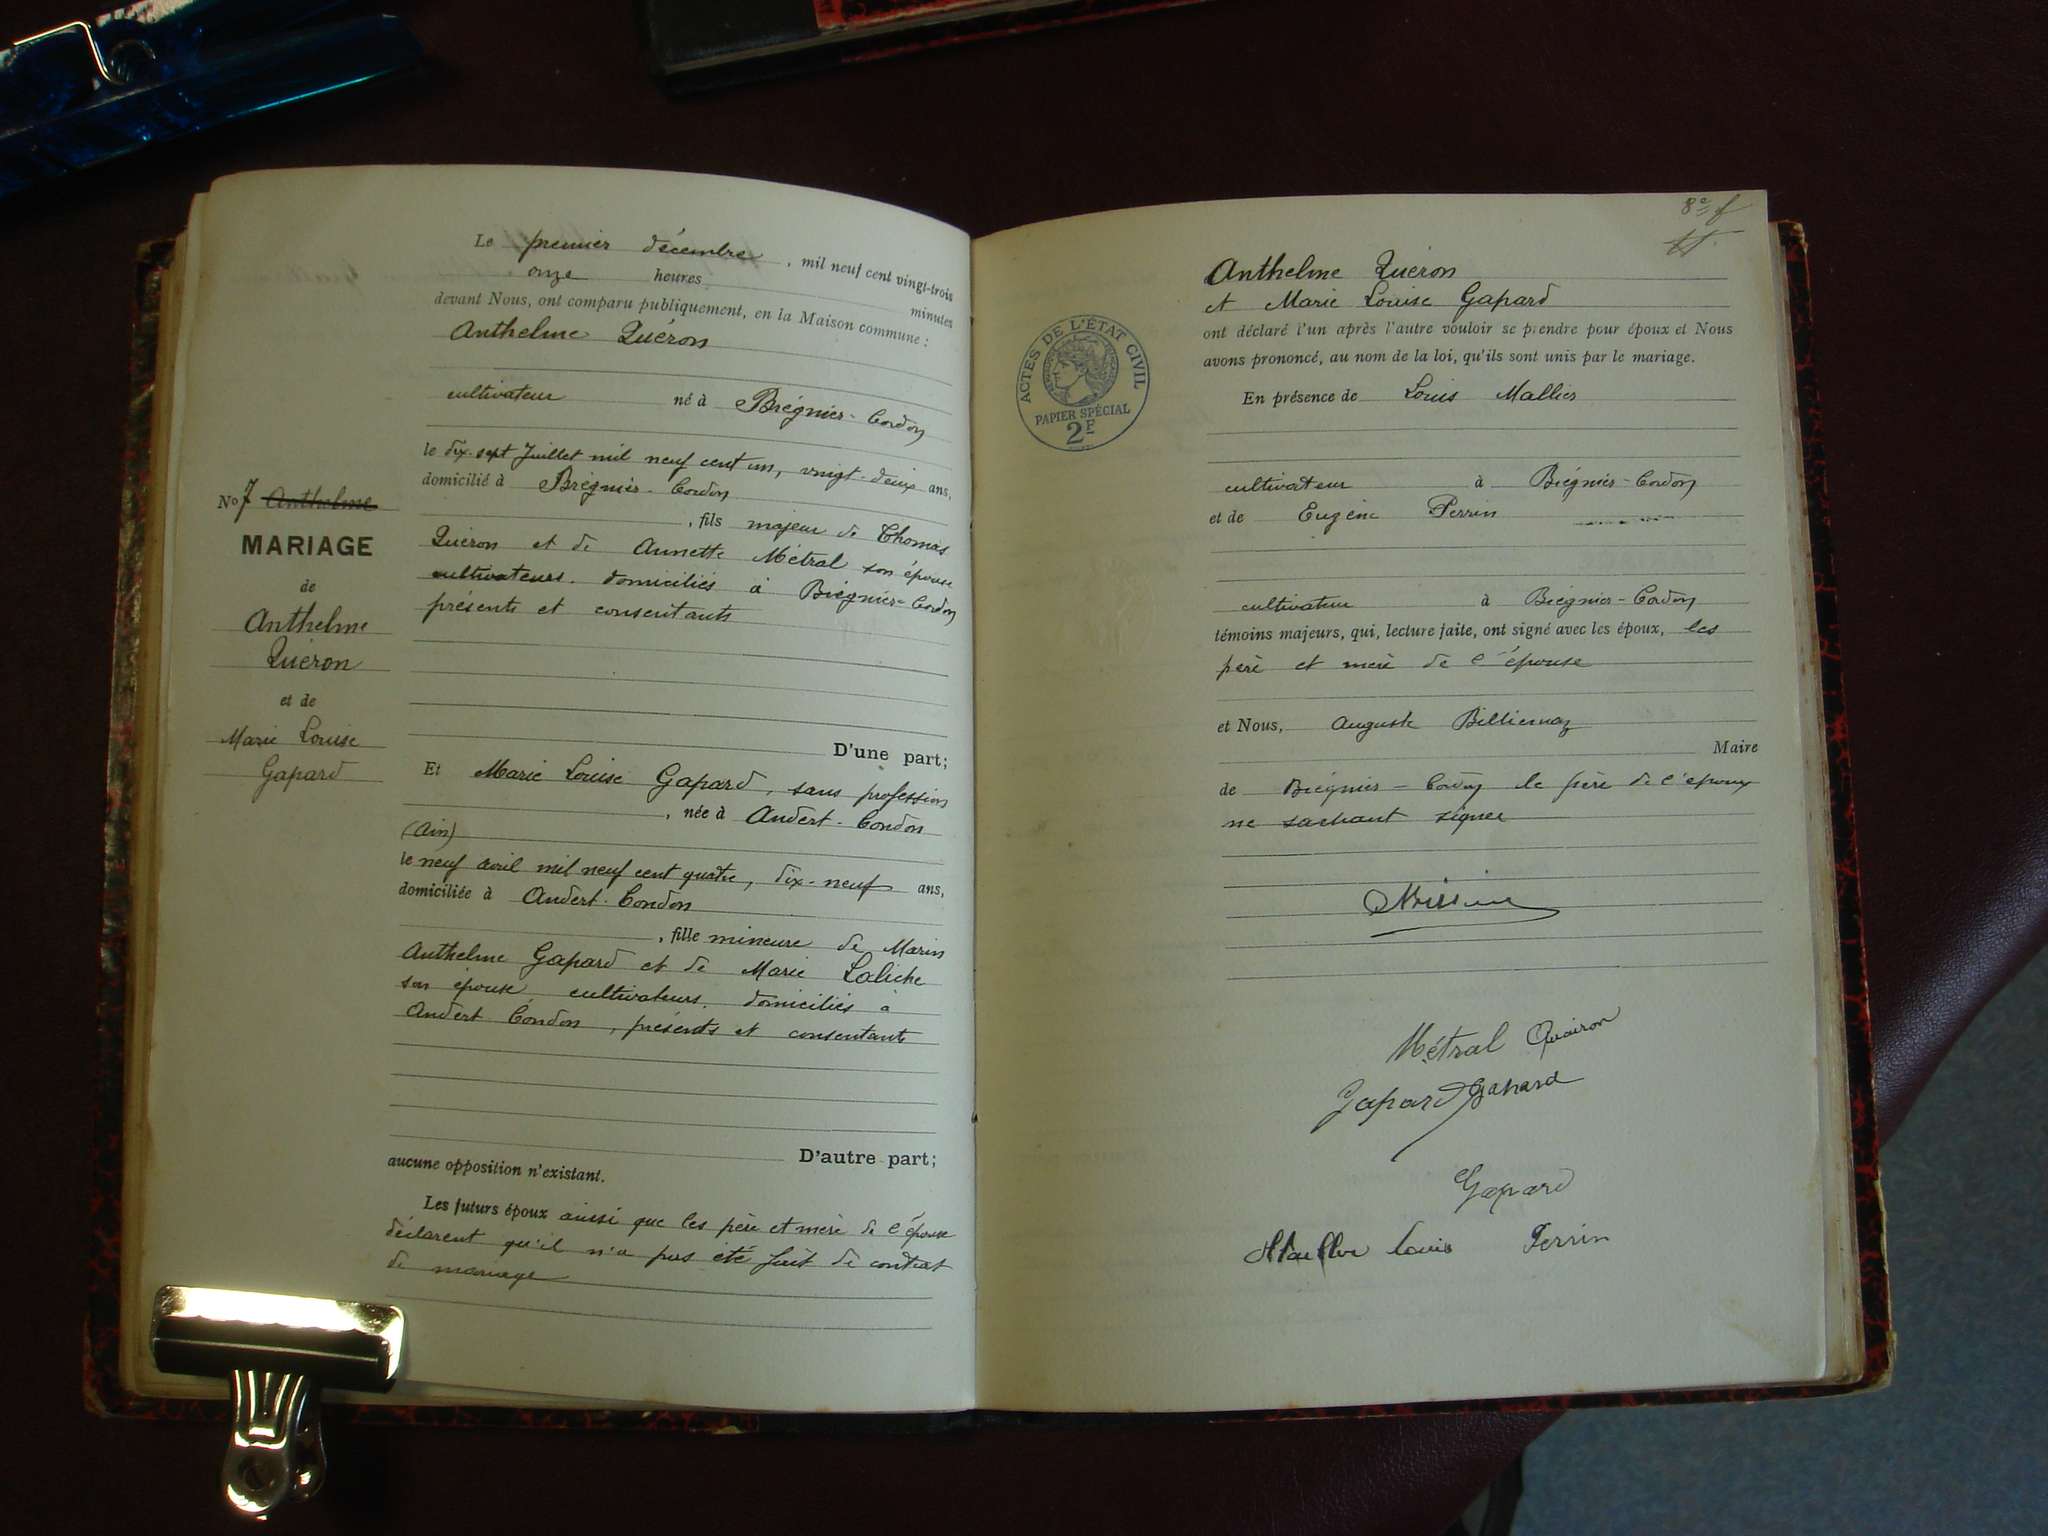 Le premier décembre, mil neuf cent vingt-trois
onze heures minutes
devant Nous, ont comparu publiquement, en la Maison commune :
Anthelme Quéron
cultivateur né à Brégnier-Cordon
le dix-sept Juillet mil neuf cent un, vingt-deux ans,
domicilié à Brégnier-Cordon
, fils majeur de Thomas
Quéron et de Annette Métral son épouse
cultivateurs domiciliés à Brégnier-Cordon
présents et consentants
D'une part;
Et Marie Louise Gapard, sans profession
, née à Andert-Condon
(Ain)
le neuf avril mil neuf cent quatre, dix-neuf ans,
domiciliée à Andert-Condon
, fille mineure de Marin
Anthelme Gapard et de Marie Laliche
son épouse cultivateurs, domiciliés à
Andert Condon, présents et consentants
D'autre part;
aucune opposition n'existant.
Les futurs époux ainsi que les père et mère de l'épouse
déclarent qu'il n'a pas été fait de contrat
de mariage
No 7 Anthelme
MARIAGE
de
Anthelme
Quéron
et de
Marie Louise
Gapard
8e f
Anthelme Quéron
et Marie Louise Gapard
ont déclaré l'un après l'autre vouloir se prendre pour époux et Nous
avons prononcé, au nom de la loi, qu'ils sont unis par le mariage.
En présence de Louis Mallier
cultivateur à Brégnier-Cordon
et de Eugène Perrin
cultivateur à Brégnier-Cordon
témoins majeurs, qui, lecture faite, ont signé avec les époux, les
père et mère de l'épouse
et Nous, Auguste Billiemaz
Maire
de Brégnier-Cordon le père de l'époux
ne sachant signer
Métral Quairon
Gapard Gapard
Gapard
Louis Perrin
ACTES DE L'ÉTAT CIVIL
PAPIER SPÉCIAL
2F